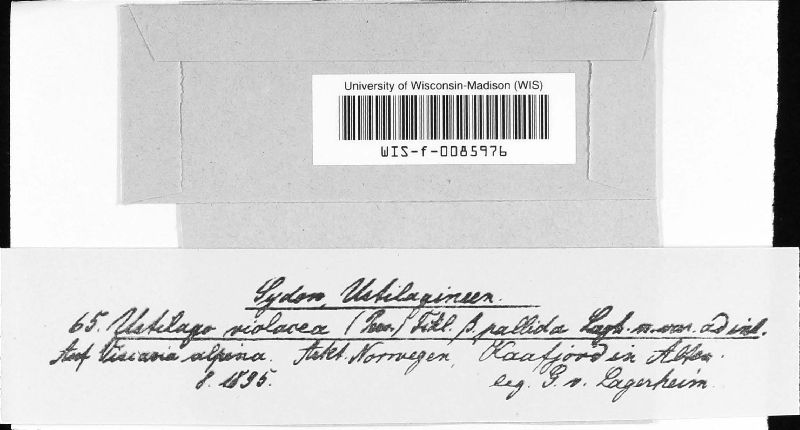 University of Wisconsin-Madison (WIS)
WIS-f-0085976
Sydow, Ustilagineen.
65. Ustilago violacea (Pers.) Fckl. β. pallida Lagh. n. var. ad int.
Auf Viscaria alpina. Arkt. Norwegen, Kaafjord in Alten.
8. 1895. leg. G. v. Lagerheim.